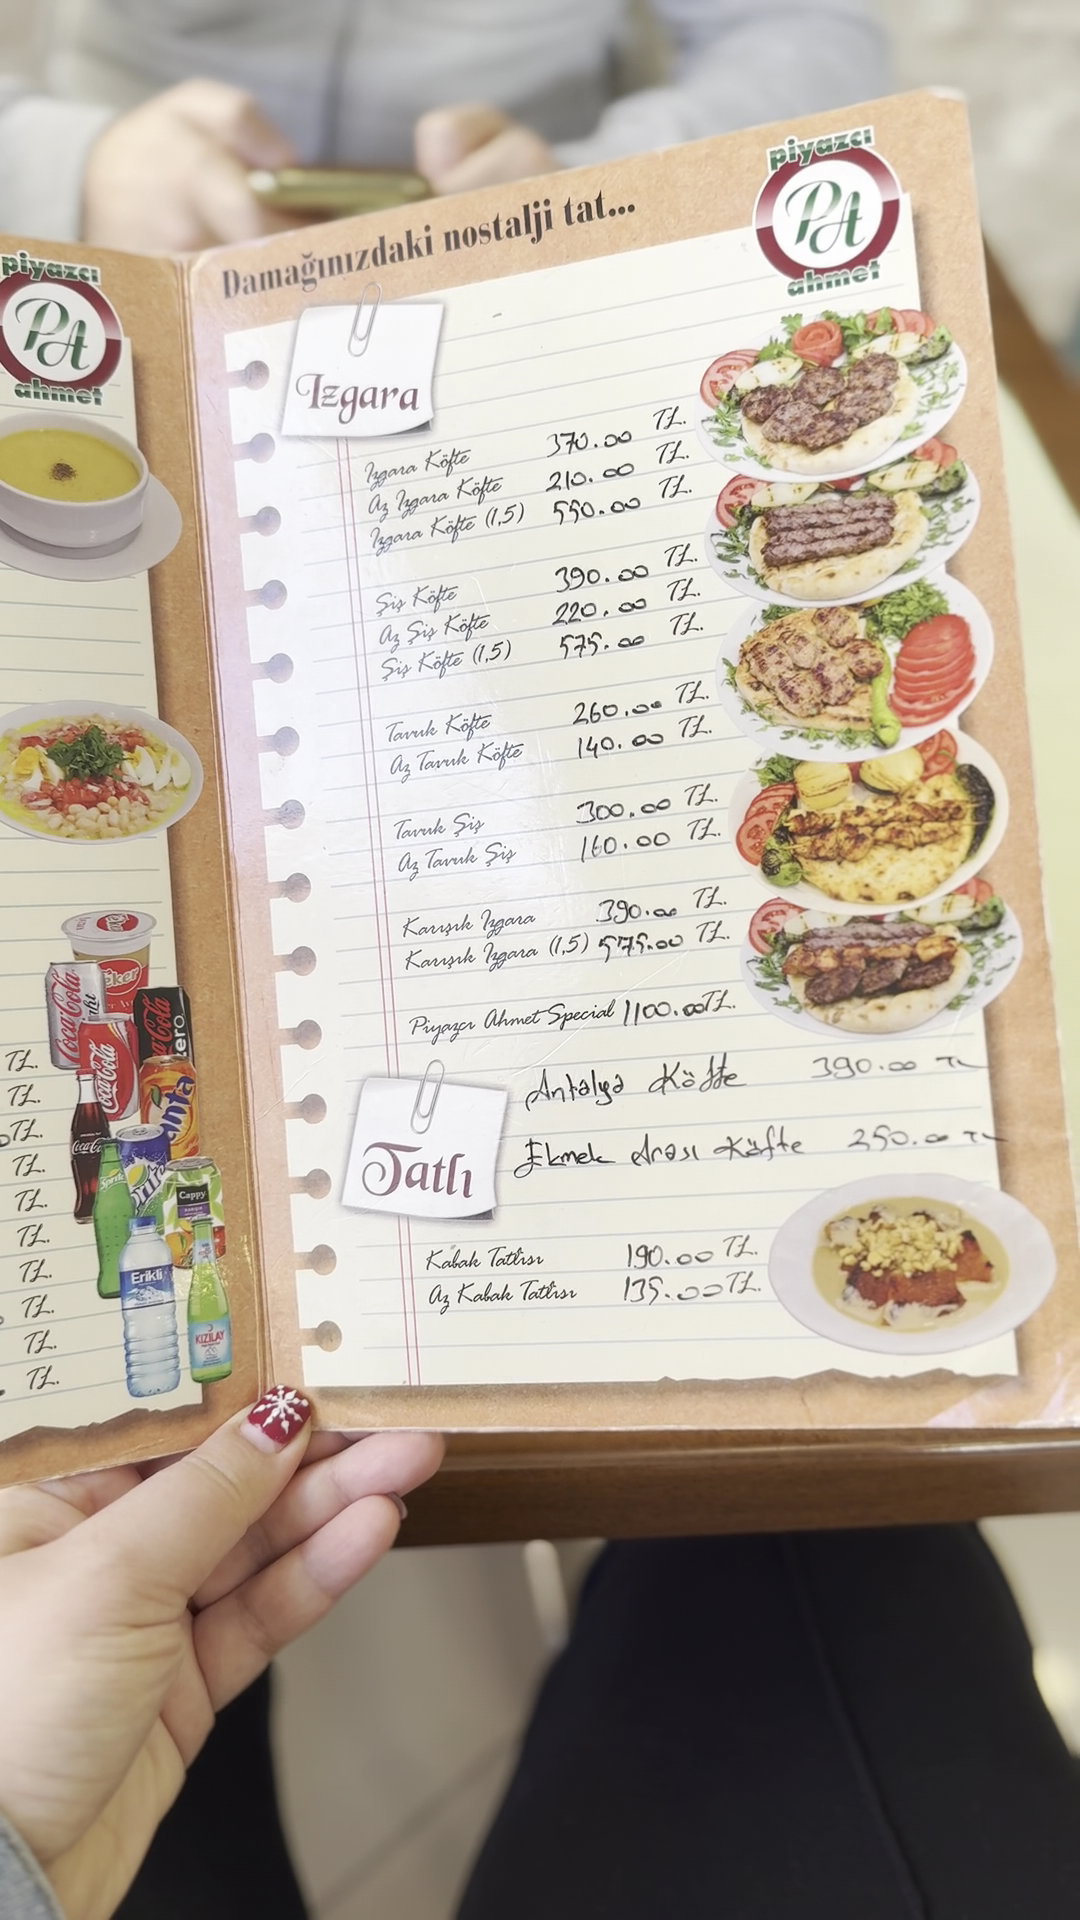 piyazcı
PA
ahmet
TL.
TL.
TL.
TL.
TL.
TL.
TL.
TL.
TL.
TL.
Coca-Cola
Coca-Cola
Coca-Cola
zero
Coca-Cola
Sprite
Cappy
Erikli
KIZILAY
Damağınızdaki nostalji tat...
piyazcı
PA
ahmet
Izgara
Izgara Köfte 370.00 TL.
Az Izgara Köfte 210.00 TL.
Izgara Köfte (1,5) 550.00 TL.
Şiş Köfte 390.00 TL.
Az Şiş Köfte 220.00 TL.
Şiş Köfte (1,5) 575.00 TL.
Tavuk Köfte 260.00 TL.
Az Tavuk Köfte 140.00 TL.
Tavuk Şiş 300.00 TL.
Az Tavuk Şiş 160.00 TL.
Karışık Izgara 390.00 TL.
Karışık Izgara (1,5) 575.00 TL.
Piyazcı Ahmet Special 1100.00 TL.
Antalya Köfte 390.00 TL
Ekmek Arası Köfte 250.00 TL
Tatlı
Kabak Tatlısı 190.00 TL.
Az Kabak Tatlısı 135.00 TL.